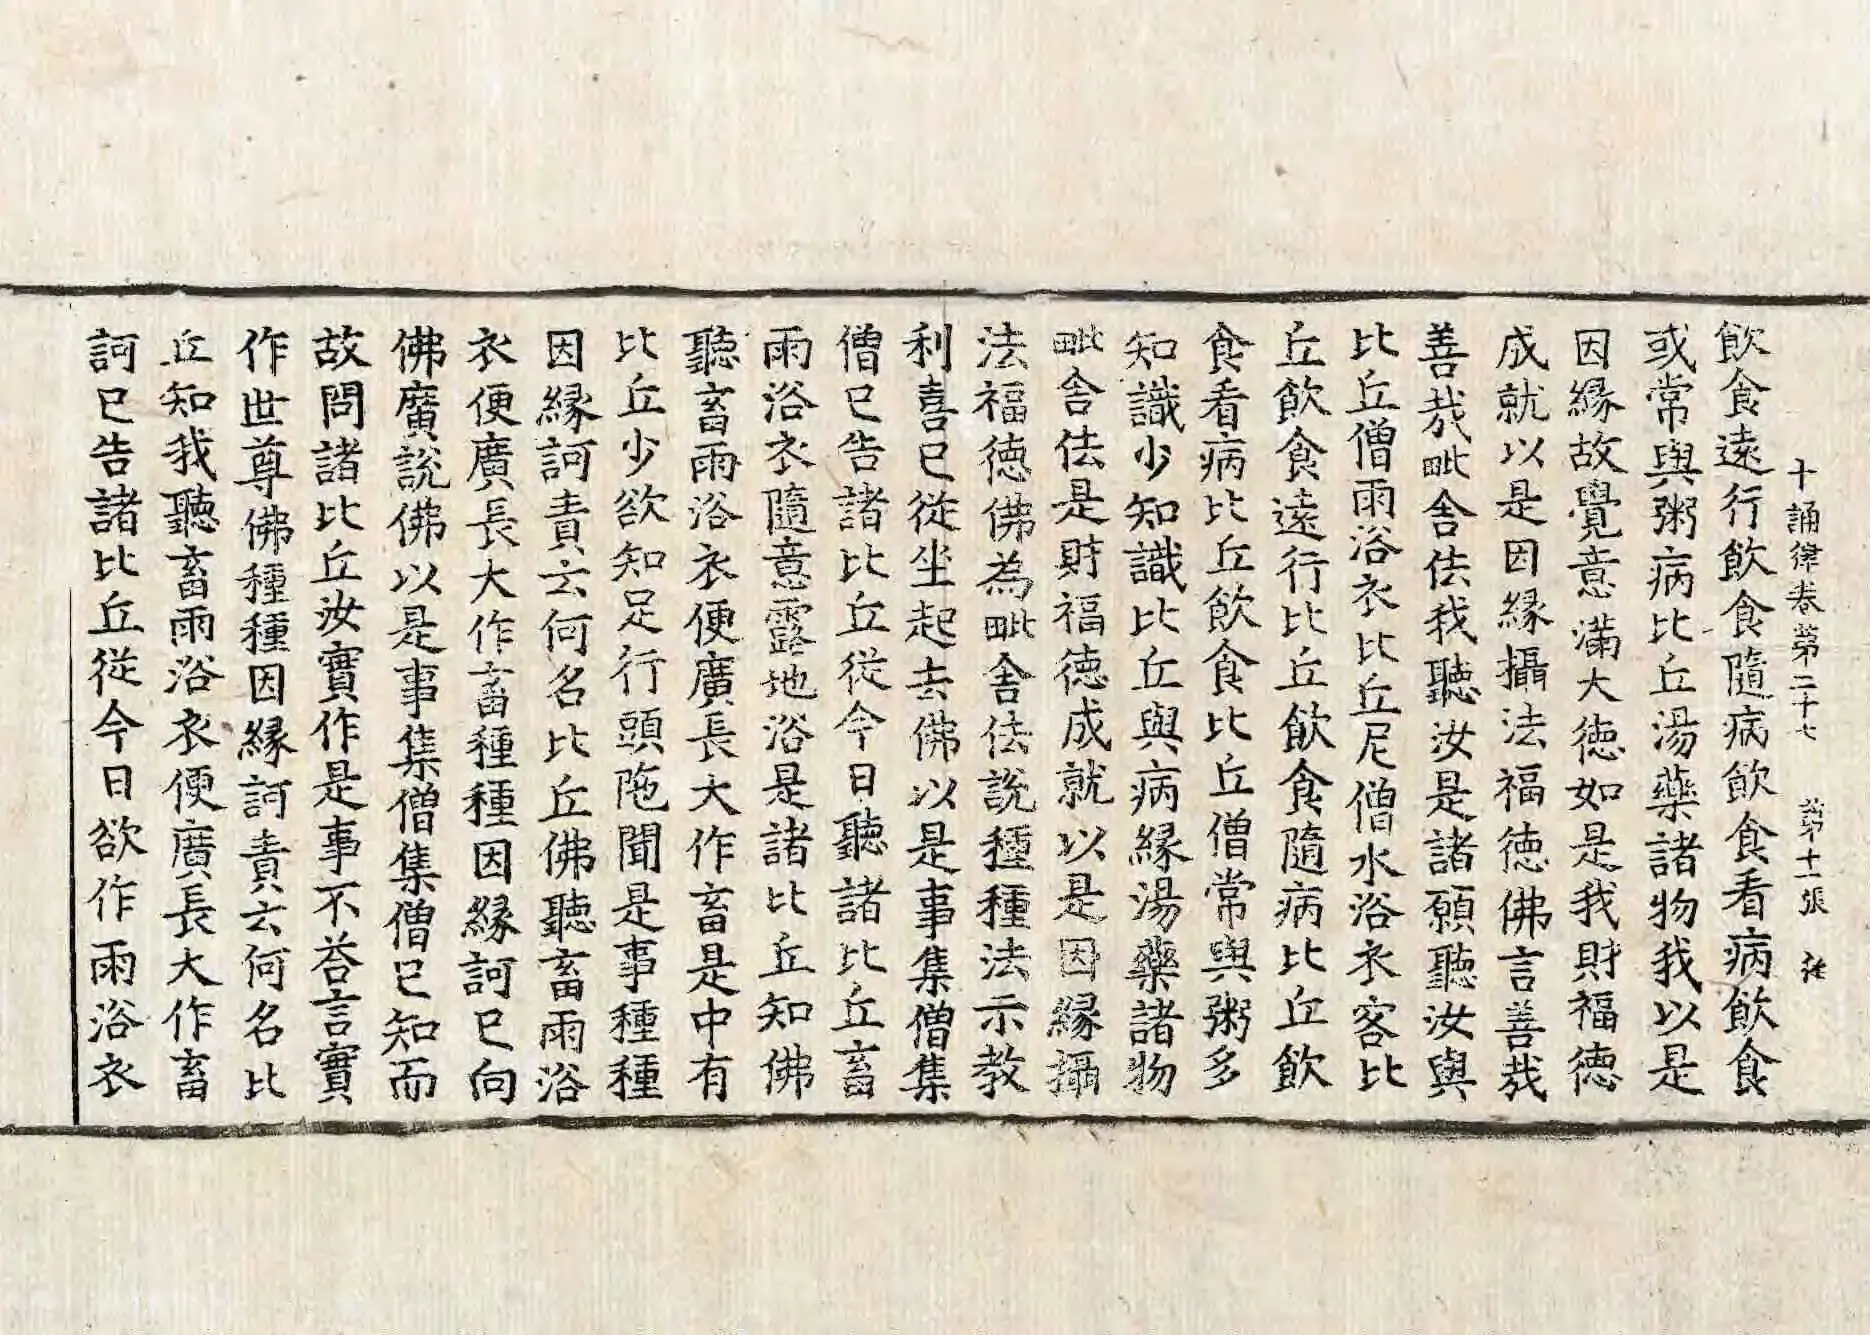 十誦律卷第二十七　第十一張　往
飲食遠行飲食隨病飲食看病飲食
或常與粥病比丘湯藥諸物我以是
因緣故覺意滿大德如是我財福德
成就以是因緣攝法福德佛言善哉
善哉毗舍佉我聽汝是諸願聽汝與
比丘僧雨浴衣比丘尼僧水浴衣客比
丘飲食遠行比丘飲食隨病比丘飲
食看病比丘飲食比丘僧常與粥多
知識少知識比丘與病緣湯藥諸物
毗舍佉是財福德成就以是因緣攝
法福德佛為毗舍佉說種種法示教
利喜已從坐起去佛以是事集僧集
僧已告諸比丘從今日聽諸比丘畜
雨浴衣隨意露地浴是諸比丘知佛
聽畜雨浴衣便廣長大作畜是中有
比丘少欲知足行頭陁聞是事種種
因緣訶責云何名比丘佛聽畜雨浴
衣便廣長大作畜種種因緣訶已向
佛廣說佛以是事集僧集僧已知而
故問諸比丘汝實作是事不荅言實
作世尊佛種種因緣訶責云何名比
丘知我聽畜雨浴衣便廣長大作畜
訶已告諸比丘從今日欲作雨浴衣